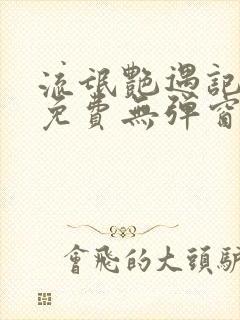 流氓艷遇記
免費無彈窗
會飛的大頭驢